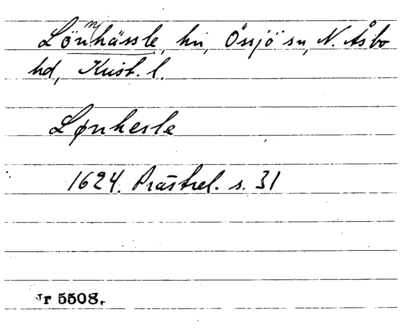 Lönnhässle, hn, Össjö sn, N. Åsbo
hd, Krist. l.
Lønhesle
1624. Prästrel. s. 31
Nr 5508.